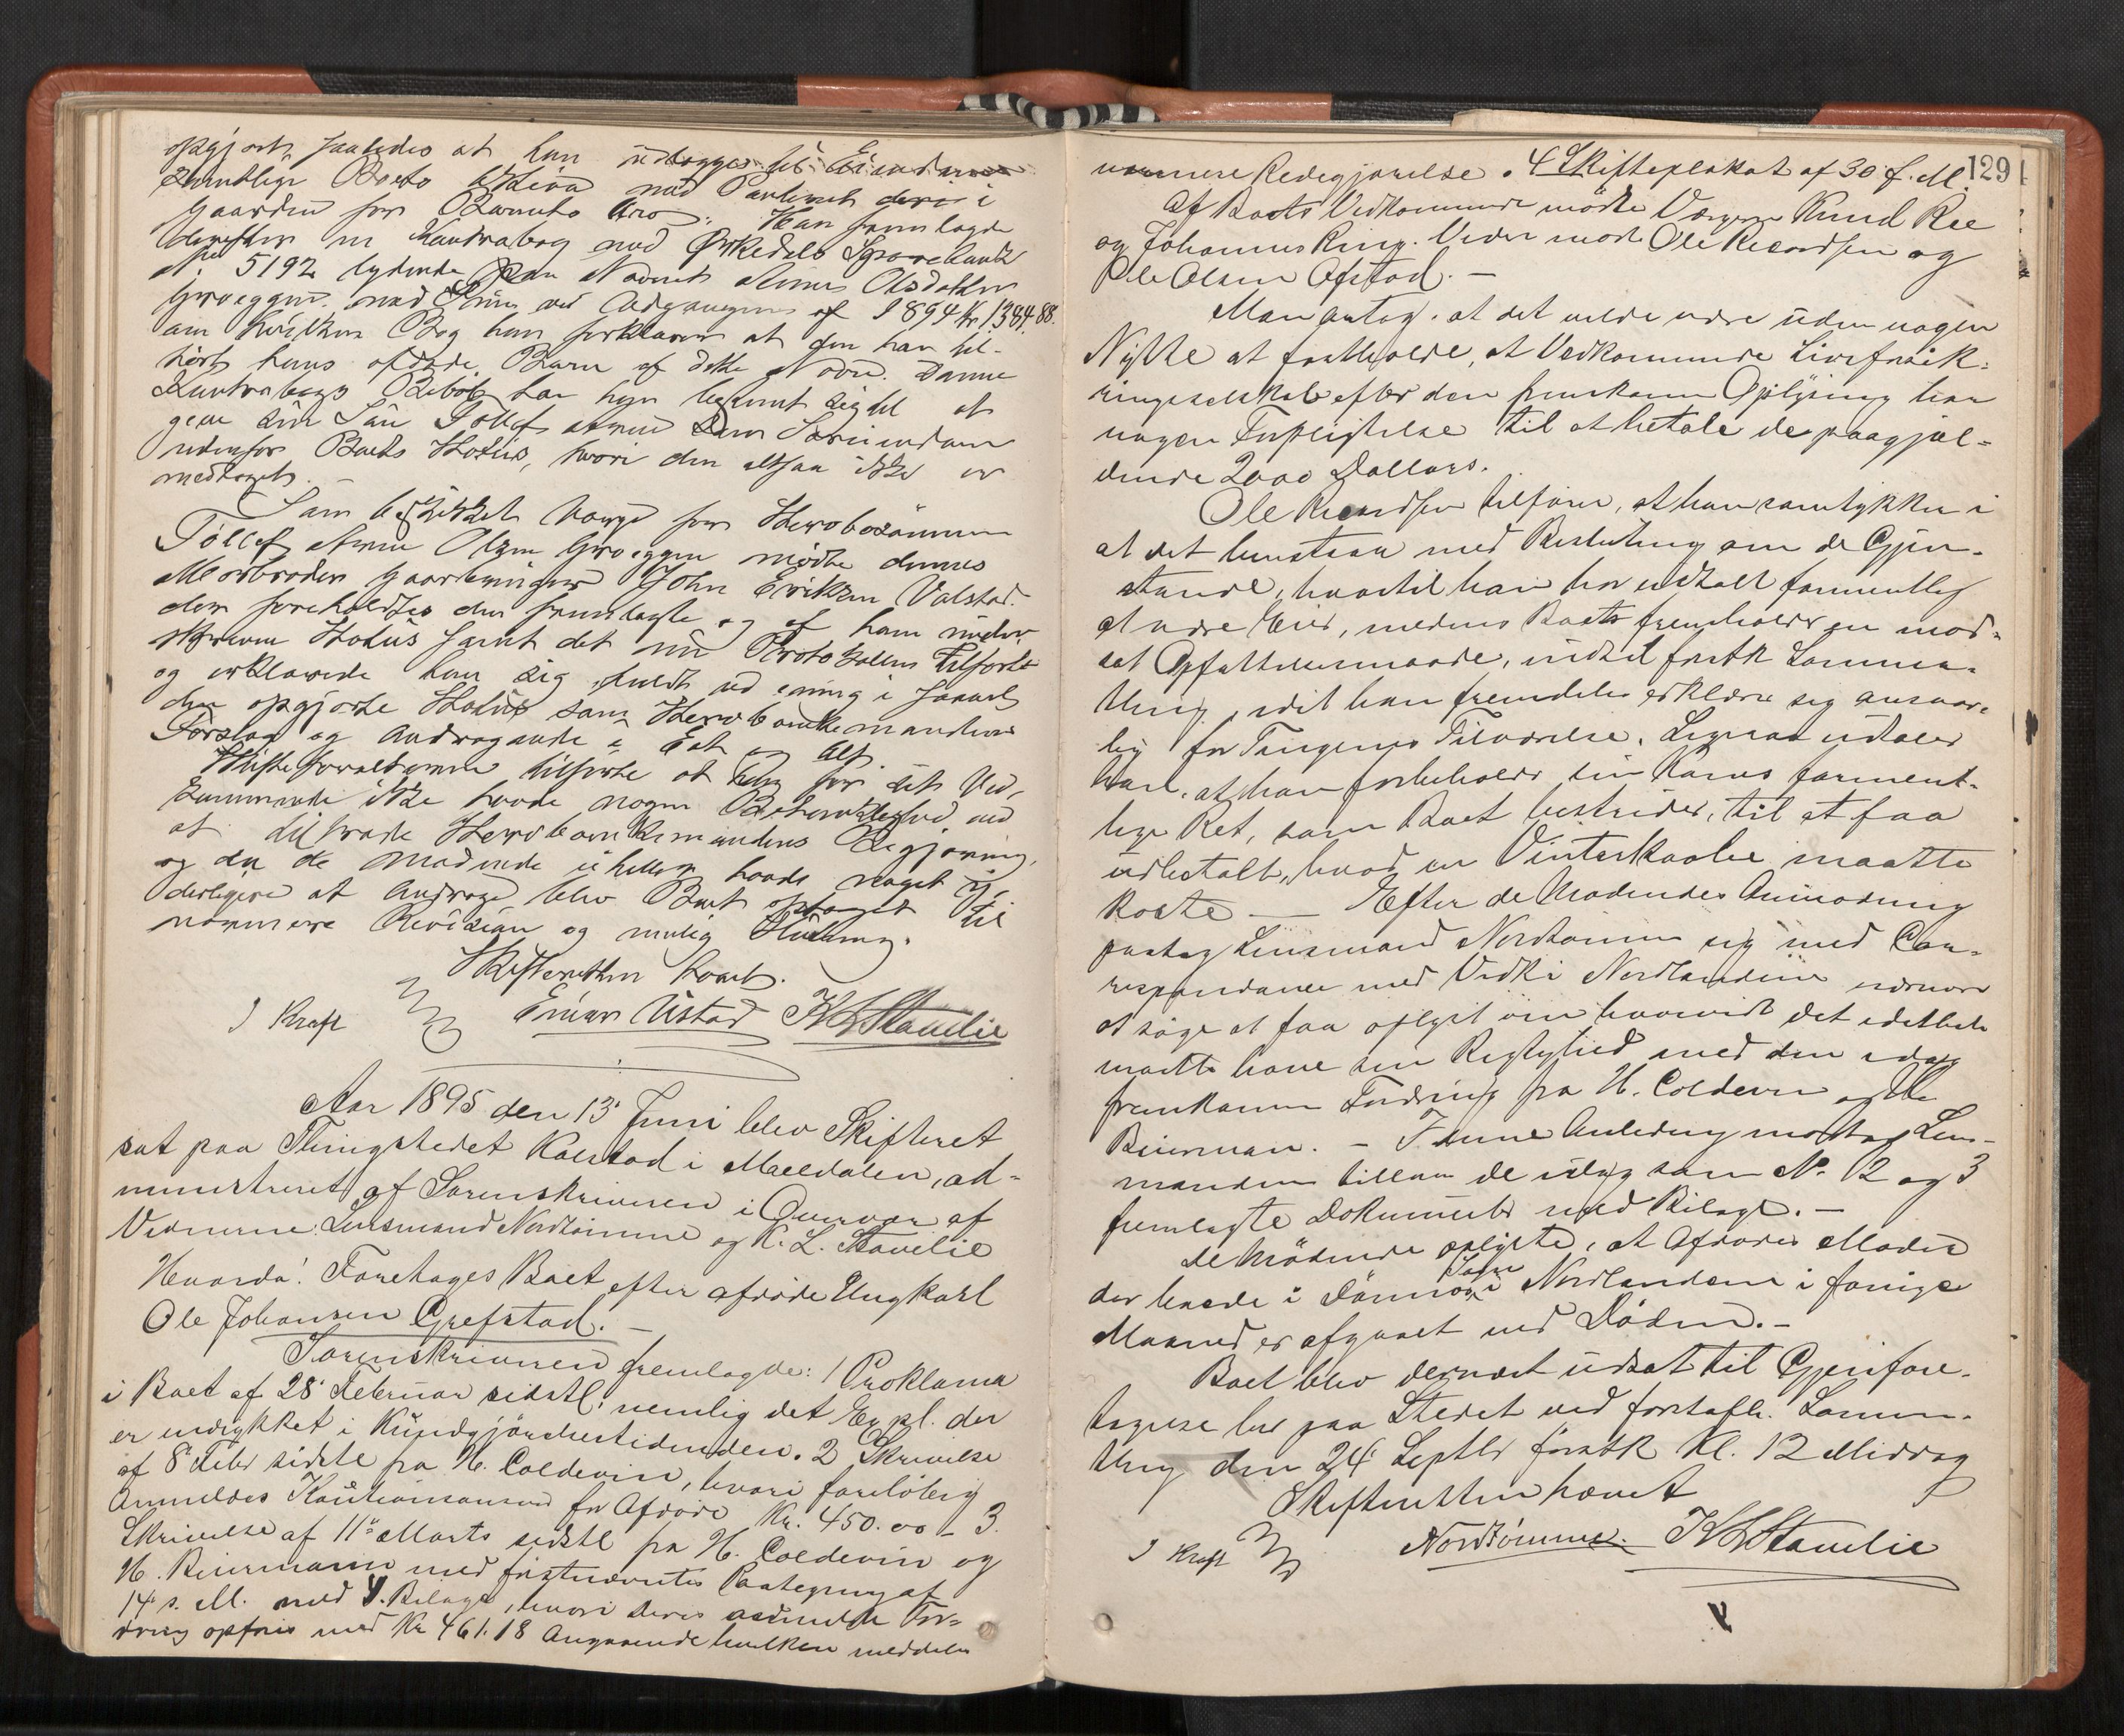 opgjort, saaledes at han udlægges til Eiendom
samtlige Boets Aktiva mod Paaheftet deri i
Gaarden for Barnets Arv. Han fremlagde
derefter en Kontrabog med Ørkedals Sparebank
No. 5192 lydende paa Navnet Olsdatter
Groeggen med Saldo ved Udgangen af 1894 Kr. 1384.88.
om hvilken Bog han forklarer at den har til-
hørt hans afdøde Barn af dette Navn. Denne
Kontrabogs Beløb har han bestemt sig til at
give sin Søn Tollef som Særeiendom
udenfor Boets Status, hvori den altsaa ikke er
medtaget. -
Som beskikket Værge for Stervbosønnen
Tollef Olsen Groeggen mødte dennes
Morbroder Gaardbruger John Eriksen Valstad.
der foreholdtes den fremlagte og af ham under-
skrevne Status samt det nu Protokollen Tilførte
og erklærede han sig fuldt ud enig i saavel
den opgjorte Status som Stervboenkemandens
Forslag og Andragende i Et og Alt.
Skifteforvalteren tilførte at han for sit Ved-
kommende ikke havde nogen Betænkelighed ved
at tiltræde Stervboenkemandens Begjæring,
og da de Mødende ei heller havde noget y-
derligere at Andrage blev Boet optaget til
nærmere Revision og mulig Slutning.
Skifteretten hævet.
J Kraft Einar Ustad K L Stavelie
Aar 1895 den 13' Juni blev Skifteret
sat paa Thingstedet Kalstad i Meeldalen, ad-
ministreret af Sorenskriveren i Overvær af
Vidnerne: Lensmand Nordtømme og K. L. Stavelie
Hvorda: Foretoges Boet efter afdøde Ungkarl
Ole Johansen Grefstad. -
Sorenskriveren fremlagde: 1 Proklama
i Boet af 28' Februar sidstl. nemlig det Expl. der
er indrykket i Kundgjørelsestidenden. 2 Skrivelse
af 8' Febr sidstl fra H. Coldevin, hvori foreløbig
Anmeldes Kautionsansvar for Afdøde Kr. 450.00 - 3.
Skrivelse af 11' Marts sidstl fra H. Coldevin og
H. Beiermann med førstnævntes Paategning af
14' s. M. med Bilage, hvori deres anmeldte For-
dring opføres med Kr 461.18 Angaaende hvilken meddeles
129
nærmere Redegjørelse. 4 Skifteplakat af 30' f. M.
Af Boets Vedkommende mødte Værgen Knud Ree
og Johannes Ring. Videre mødte Ole Ricardsen og
Ole Olsen Ofstad. -
Man antog, at det vilde være uden nogen
Nytte at fastholde, at Vedkommende Livsforsik-
ringsselskab efter den fremkomne Oplysning har
nogen Forpligtelse til at betale de paagjæl-
dende 2000 Dollars.
Ole Ricardsen tilførte, at han samtykker i
at det henstaar med Beslutning om de Gjen-
stande, hvortil han har udtalt formentlig
at være Eier, medens Boets fremholder en mod-
sat Opfattelsesmaade, indtil førstk Samman-
ling, idet han fremdeles erklærer sig ansvar-
lig for Tingenes Tilværelse. Ligesaa udtaler
han, at han forbeholder sin Kones forment-
lige Ret, som Boet bestrider, til at faa
udbetalt, hvad en Vinterkaabe maatte
koste. — Efter de Mødendes Anmodning
paatog Lensmand Nordtømme sig med Cor-
respondance med Vedk i Nordlandene nærmere
at søge at faa oplyst om hvorvidt det idethele
maatte have sin Rigtighed med den idag
fremkomne Fordring fra H. Coldevin og H.
Beierman. - I denne Anledning modtog Lens-
manden tillaans de idag som No. 2 og 3
fremlagte Dokumenter med Bilage. -
De Mødende oplyste, at Afdødes Moder
der boede i Dønnes Sogn i Nordlandene i forrige
Maaned er afgaaet ved Døden. -
Boet blev dernæst udsat til Gjenfore-
tagelse her paa Stedet ved forstaae. Samm-
ling den 24' Septbr førstk Kl. 12 Middag
Skifteretten hævet
J Kraft Nordtømme. K L Stavelie